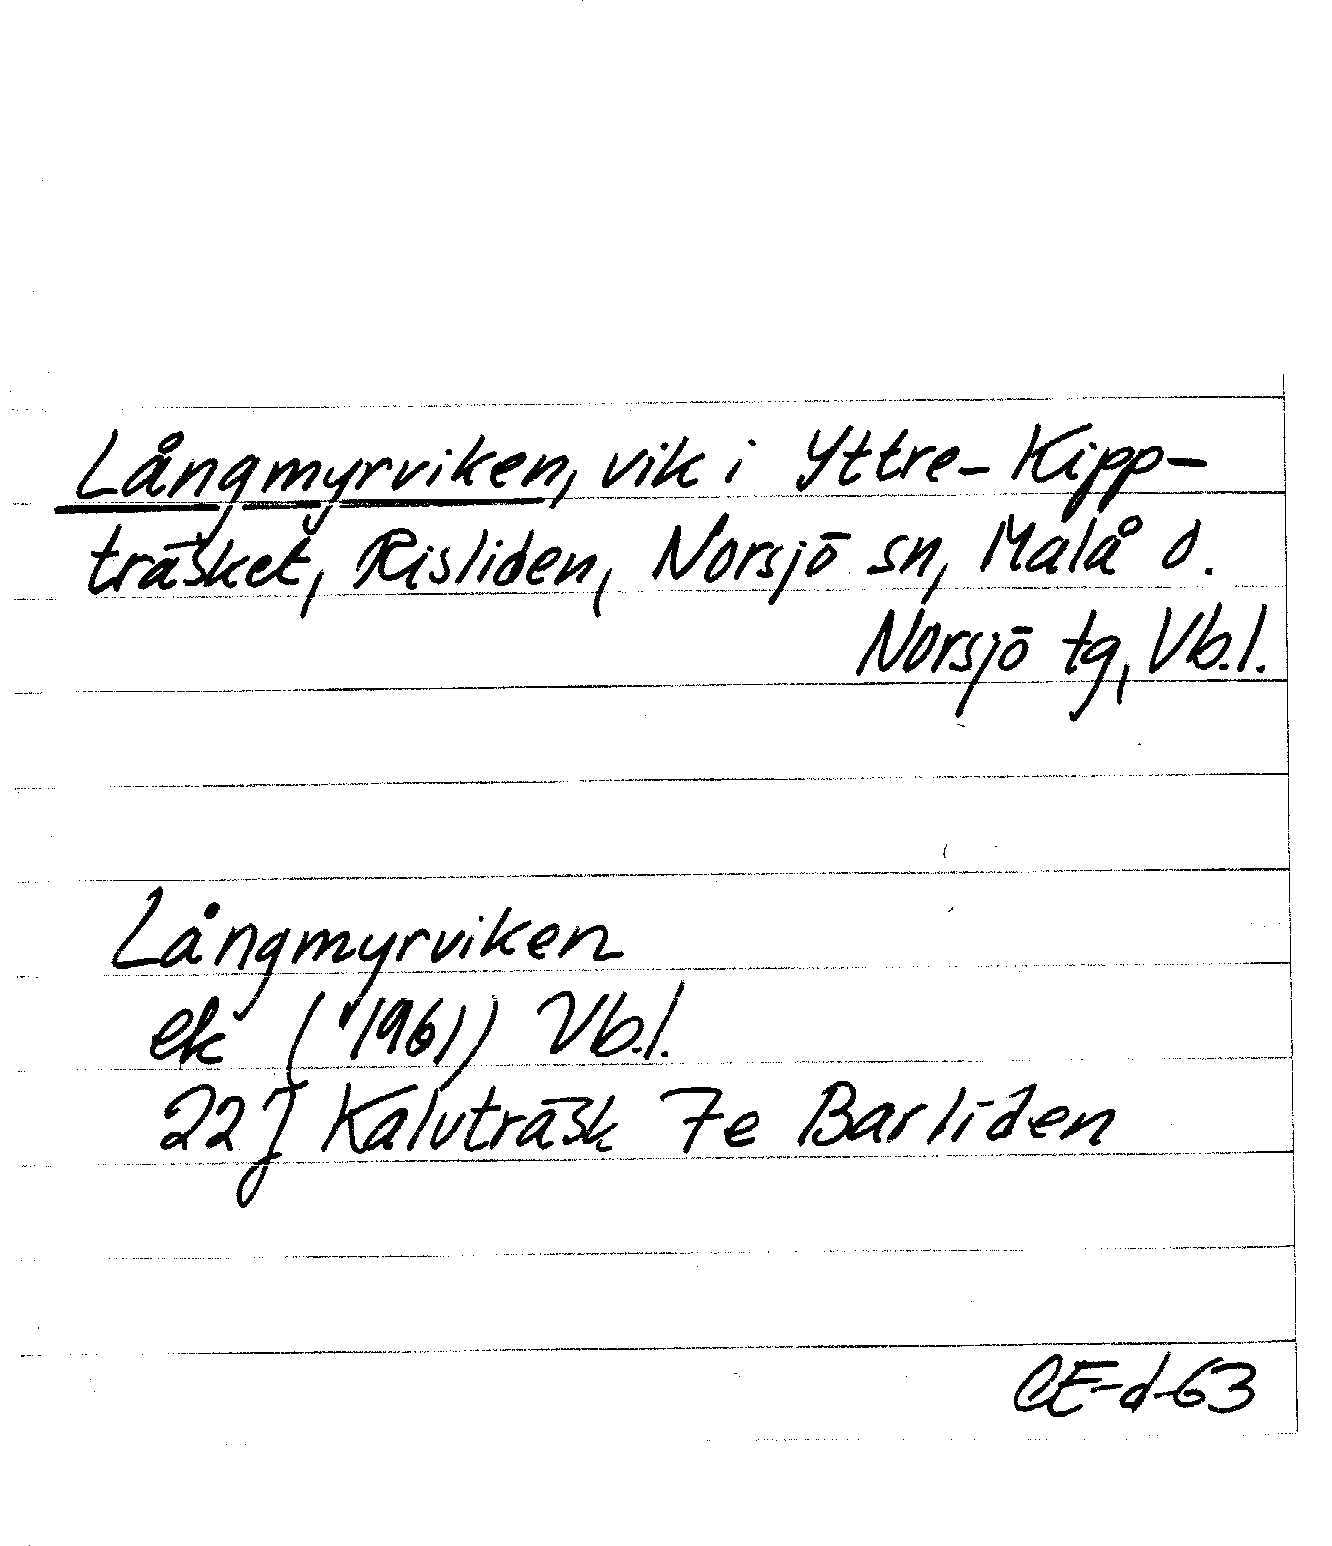 Långmyrviken, vik i Yttre-Kipp-
träsket, Risliden, Norsjö sn, Malå o.
Norsjö tg, Vb.l.
Långmyrviken
ek (1961) Vb.l.
22J Kalvträsk 7e Barliden
CE-d-63